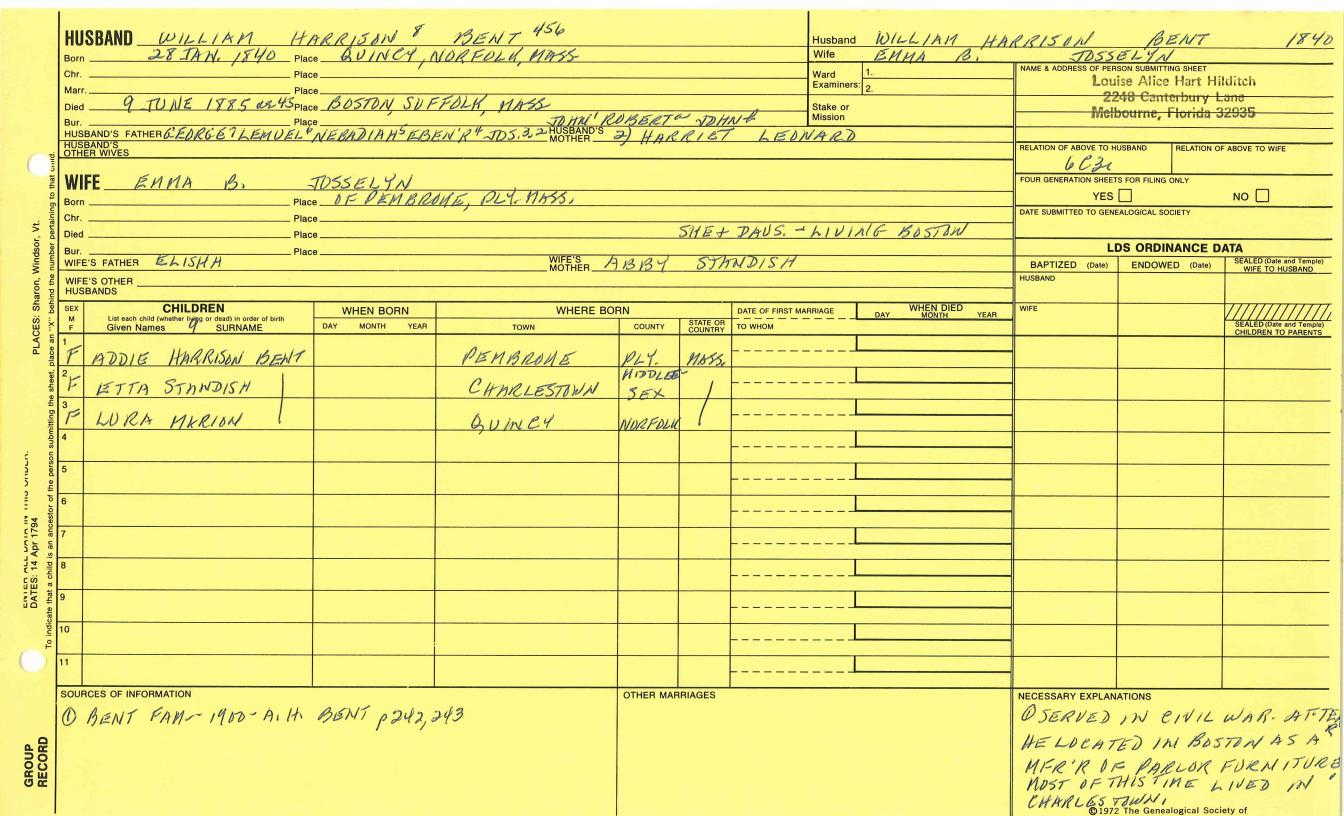 HUSBAND WILLIAM HARRISON 8 BENT 456
Born 28 JAN. 1840 Place QUINCY, NORFOLK, MASS
Chr. Place
Marr. Place
Died 9 JUNE 1885 ae 45 Place BOSTON, SUFFOLK, MASS
Bur. Place JOHN1 ROBERTa JOHNb
HUSBAND'S FATHER GEORGE7 LEMUEL6 NEBADIAH5 EBEN'R4 JOS.3,2 HUSBAND'S MOTHER 2) HARRIET LEONARD
HUSBAND'S OTHER WIVES
WIFE EMMA B. JOSSELYN
Born Place OF PEMBROKE, PLY. MASS.
Chr. Place
Died Place SHE + DAUS. - LIVING BOSTON
Bur. Place
WIFE'S FATHER ELISHA WIFE'S MOTHER ABBY STANDISH
WIFE'S OTHER HUSBANDS
Husband WILLIAM HARRISON BENT 1840
Wife EMMA B. JOSSELYN
Ward Examiners: 1.
2.
Stake or Mission
NAME & ADDRESS OF PERSON SUBMITTING SHEET
Louise Alice Hart Hilditch
2248 Canterbury Lane
Melbourne, Florida 32935
RELATION OF ABOVE TO HUSBAND RELATION OF ABOVE TO WIFE
6C3r
FOUR GENERATION SHEETS FOR FILING ONLY
YES NO
DATE SUBMITTED TO GENEALOGICAL SOCIETY
LDS ORDINANCE DATA
BAPTIZED (Date) ENDOWED (Date) SEALED (Date and Temple) WIFE TO HUSBAND
HUSBAND
WIFE
SEALED (Date and Temple) CHILDREN TO PARENTS
SEX M F
CHILDREN
List each child (whether living or dead) in order of birth
Given Names 9 SURNAME
WHEN BORN
DAY MONTH YEAR
WHERE BORN
TOWN COUNTY STATE OR COUNTRY
DATE OF FIRST MARRIAGE
TO WHOM
WHEN DIED
DAY MONTH YEAR
1 F ADDIE HARRISON BENT PEMBROKE PLY. MASS.
2 F ETTA STANDISH CHARLESTOWN MIDDLESEX
3 F LURA MARION QUINCY NORFOLK
4
5
6
7
8
9
10
11
SOURCES OF INFORMATION
① BENT FAM- 1900- A.H. BENT p242,243
OTHER MARRIAGES
NECESSARY EXPLANATIONS
① SERVED IN CIVIL WAR. AFTER
HE LOCATED IN BOSTON AS A
MFR'R OF PARLOR FURNITURE
MOST OF THIS TIME LIVED IN
CHARLESTOWN.
©1972 The Genealogical Society of
PLACES: Sharon, Windsor, Vt.
ENTER ALL DATA IN THIS ORDER:
DATES: 14 Apr 1794
To indicate that a child is an ancestor of the person submitting the sheet, place an "X" behind the number pertaining to that child.
GROUP RECORD